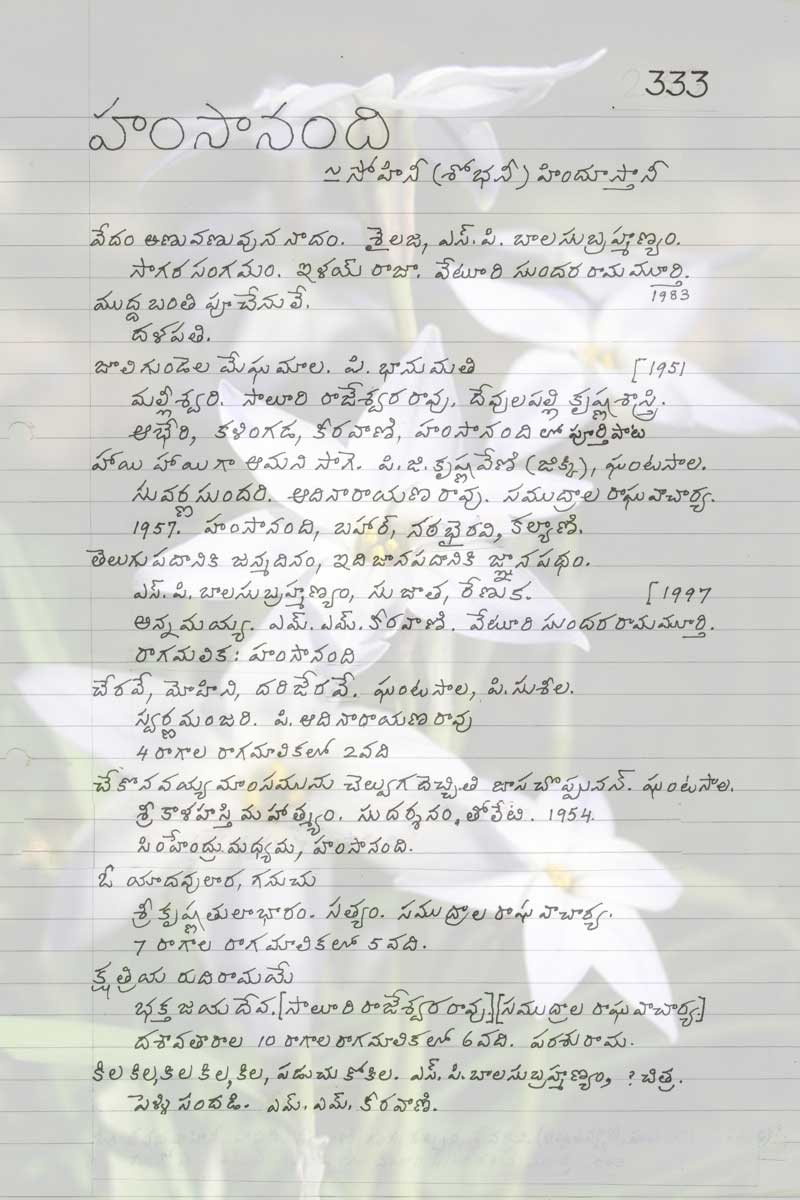 333
హంసానంది
~ సోహినీ (శోభనీ) హిందూస్తానీ
వేదం అణువణువున నాదం. శైలజ, ఎస్. పి. బాలసుబ్రహ్మణ్యం.
సాగర సంగమం. ఇళయ్ రాజా. వేటూరి సుందర రామమూర్తి.
1983
ముద్ద బంతి పూచేనులే.
దళపతి.
జాలి గుండెల మేఘమాల. పి. భానుమతి [1951
మల్లీశ్వరి. సాలూరి రాజేశ్వర రావు. దేవులపల్లి కృష్ణశాస్త్రి.
ఆభేరి, కళింగడ, కీరవాణి, హంసానంది లో పూర్తిపాట
హాయి హాయిగా ఆమని సాగె. పి. జి. కృష్ణవేణి (జిక్కి), ఘంటసాల.
సువర్ణ సుందరి. ఆదినారాయణ రావు. సముద్రాల రాఘవాచార్య.
1957. హంసానంది, బహార్, నఠభైరవి, కల్యాణి.
తెలుగు పదానికి జన్మదినం, ఇది జానపదానికి జ్ఞానపథం.
ఎస్. పి. బాలసుబ్రహ్మణ్యం, సుజాత, రేణుక. [1997
అన్నమయ్య. ఎమ్. ఎమ్. కీరవాణి. వేటూరి సుందరరామమూర్తి.
రాగమలిక: హంసానంది
చేరవే, మోహిని, దరిజేరవే. ఘంటసాల, పి. సుశీల.
స్వర్ణమంజరి. పి. ఆదినారాయణ రావు
4 రాగాల రాగమాలికలో 2వది
చేకొనవయ్య మాంసమును చెల్వుగదెచ్చితి బాసచొప్పునన్. ఘంటసాల.
శ్రీ కాళహస్తి మహాత్మ్యం. సుదర్శనం, తోలేటి. 1954.
సింహేంద్రుమధ్యమ, హంసానంది.
ఓ యాదవులార, గనుచు
శ్రీ కృష్ణ తులాభారం. సత్యం. సముద్రాల రాఘవాచార్య.
7 రాగాల రాగమాలికలో 5వది.
క్షత్రియ రుదిరామయే
భక్త జయదేవ. [సాలూరి రాజేశ్వర రావు] [సముద్రాల రాఘవాచార్య]
దశావతారాల 10 రాగాల రాగమాలికలో 6వది. పరశురామ.
కిల కిల, కిల కిల, కిల, పడుచు కోకిల. ఎస్. పి. బాలసుబ్రహ్మణ్యం, ? చిత్ర.
పెళ్ళి సందడి. ఎమ్. ఎమ్. కీరవాణి.